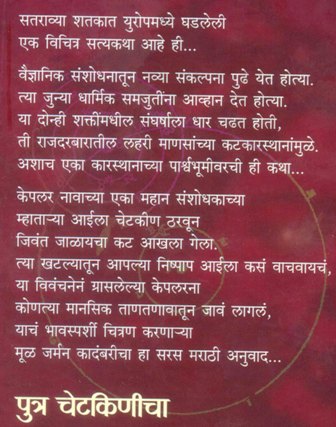 सतराव्या शतकात युरोपमध्ये घडलेली
एक विचित्र सत्यकथा आहे ही...
वैज्ञानिक संशोधनातून नव्या संकल्पना पुढे येत होत्या.
त्या जुन्या धार्मिक समजुतींना आव्हान देत होत्या.
या दोन्ही शक्तींमधील संघर्षाला धार चढत होती,
ती राजदरबारातील लहरी माणसांच्या कटकारस्थानांमुळे.
अशाच एका कारस्थानाच्या पार्श्वभूमीवरची ही कथा...
केपलर नावाच्या एका महान संशोधकाच्या
म्हाताऱ्या आईला चेटकीण ठरवून
जिवंत जाळायचा कट आखला गेला.
त्या खटल्यातून आपल्या निष्पाप आईला कसं वाचवायचं,
या विवंचनेनं ग्रासलेल्या केपलरना
कोणत्या मानसिक ताणतणावातून जावं लागलं,
याचं भावस्पर्शी चित्रण करणाऱ्या
मूळ जर्मन कादंबरीचा हा सरस मराठी अनुवाद...
पुत्र चेटकिणीचा